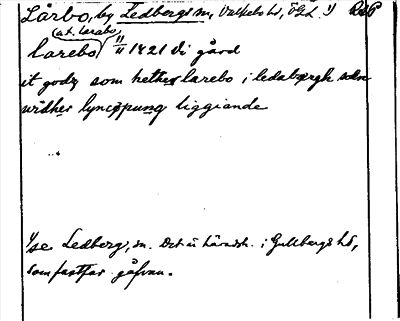 Lårbo, by Ledbergs sn, Valkebo hd, ÖGL. 1) RAP
(at. larabo)
larebo 11/11 1421 di gård
it godz som hether larebo i ledabærgh sokn
widher lyncøpung liggiande
1/ se Ledberg, sn. Det är häradsh. i Gullbergs hd,
som fastfar gåfvan.